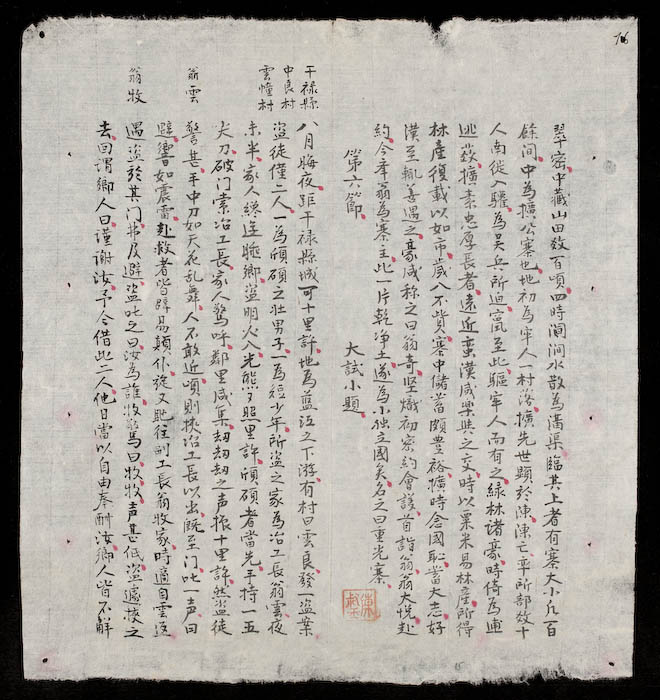 76
翠密中藏山田数百頃四時澗澗水散為溝渠臨其上者有寨大小凡百
餘间中為擴公寨也地初為牢人一村落擴先世顕於陳陳亡率所部数十
人南從入驩為吳兵所迫竄至此驅牢人而有之緑林諸豪時倚為逋
逃薮擴素忠厚長者遠近蛮漢咸樂與之交時以粟米易林産所得
林産復載以如市歲入不貲寨中儲蓄頗豊裕擴時念國恥當大志好
漢至輒善遇之豪咸称之曰翁奇坚熾初寮約會議首詣翁翁大悦赴
約今奉翁為寨主此一片乾净土遂為小独立國矣名之曰重光寨
第六節 大試小題
干禄縣
中良村
雲憧村
八月晦夜距干禄縣城可十里許地為藍江之下游有村曰雲良發一盗案
盗徒僅二人一為頎碩之壮男子一為短少年所盗之家為冶工長翁雲夜
未半家人総逞睡鄉盗明火入光熊了照里許頎碩者當先手持一五
尖刀破门索冶工長家人驚呼鄰里咸集刼刼刼之声振十里許然盗徒
翁雲
警甚手中刀如天花乱舞人不敢近頃則挾冶工長以出既至门叱一声曰
避響如震雷赴救者皆辟易顛仆旋又馳往副工長翁牧家時適自雲返
翁牧
遇盗於其门弗及避盗叱之曰汝為誰牧驚曰牧牧声甚低盗遽挾之
去回謂鄉人曰謹謝汝予今借此二人他日當以自由奉酬汝鄉人皆不解